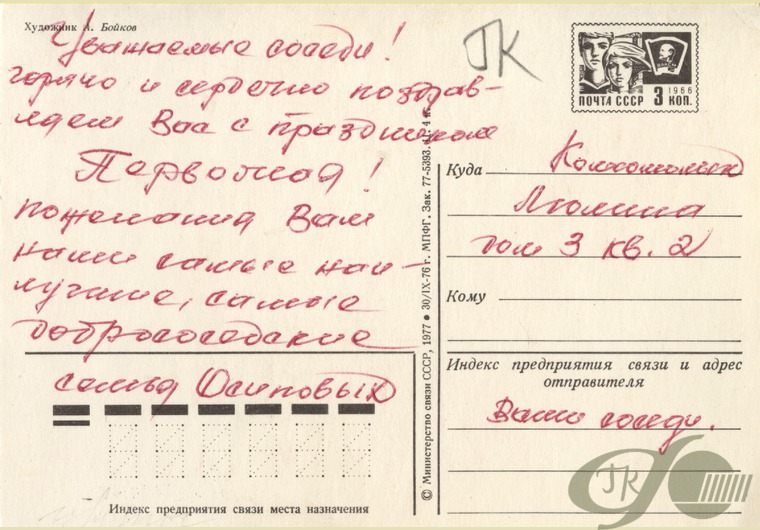 Художник А. Бойков
Уважаемые соседи!
горячо и сердечно поздрав-
ляем Вас с праздником
Первомая!
пожелания Вам
наши самые наи-
лучшие, самые
добрососедские
семья Осиповых
Индекс предприятия связи места назначения
© Министерство связи СССР, 1977 ● 30/IX-76 г. МПФГ. Зак. 77-5393. Ц. 4 к.
ГК
1966
ПОЧТА СССР 3 КОП.
Куда Комсомольск
дом 3 кв. 2
Кому
Индекс предприятия связи и адрес
отправителя
Ваши соседи.
ГК